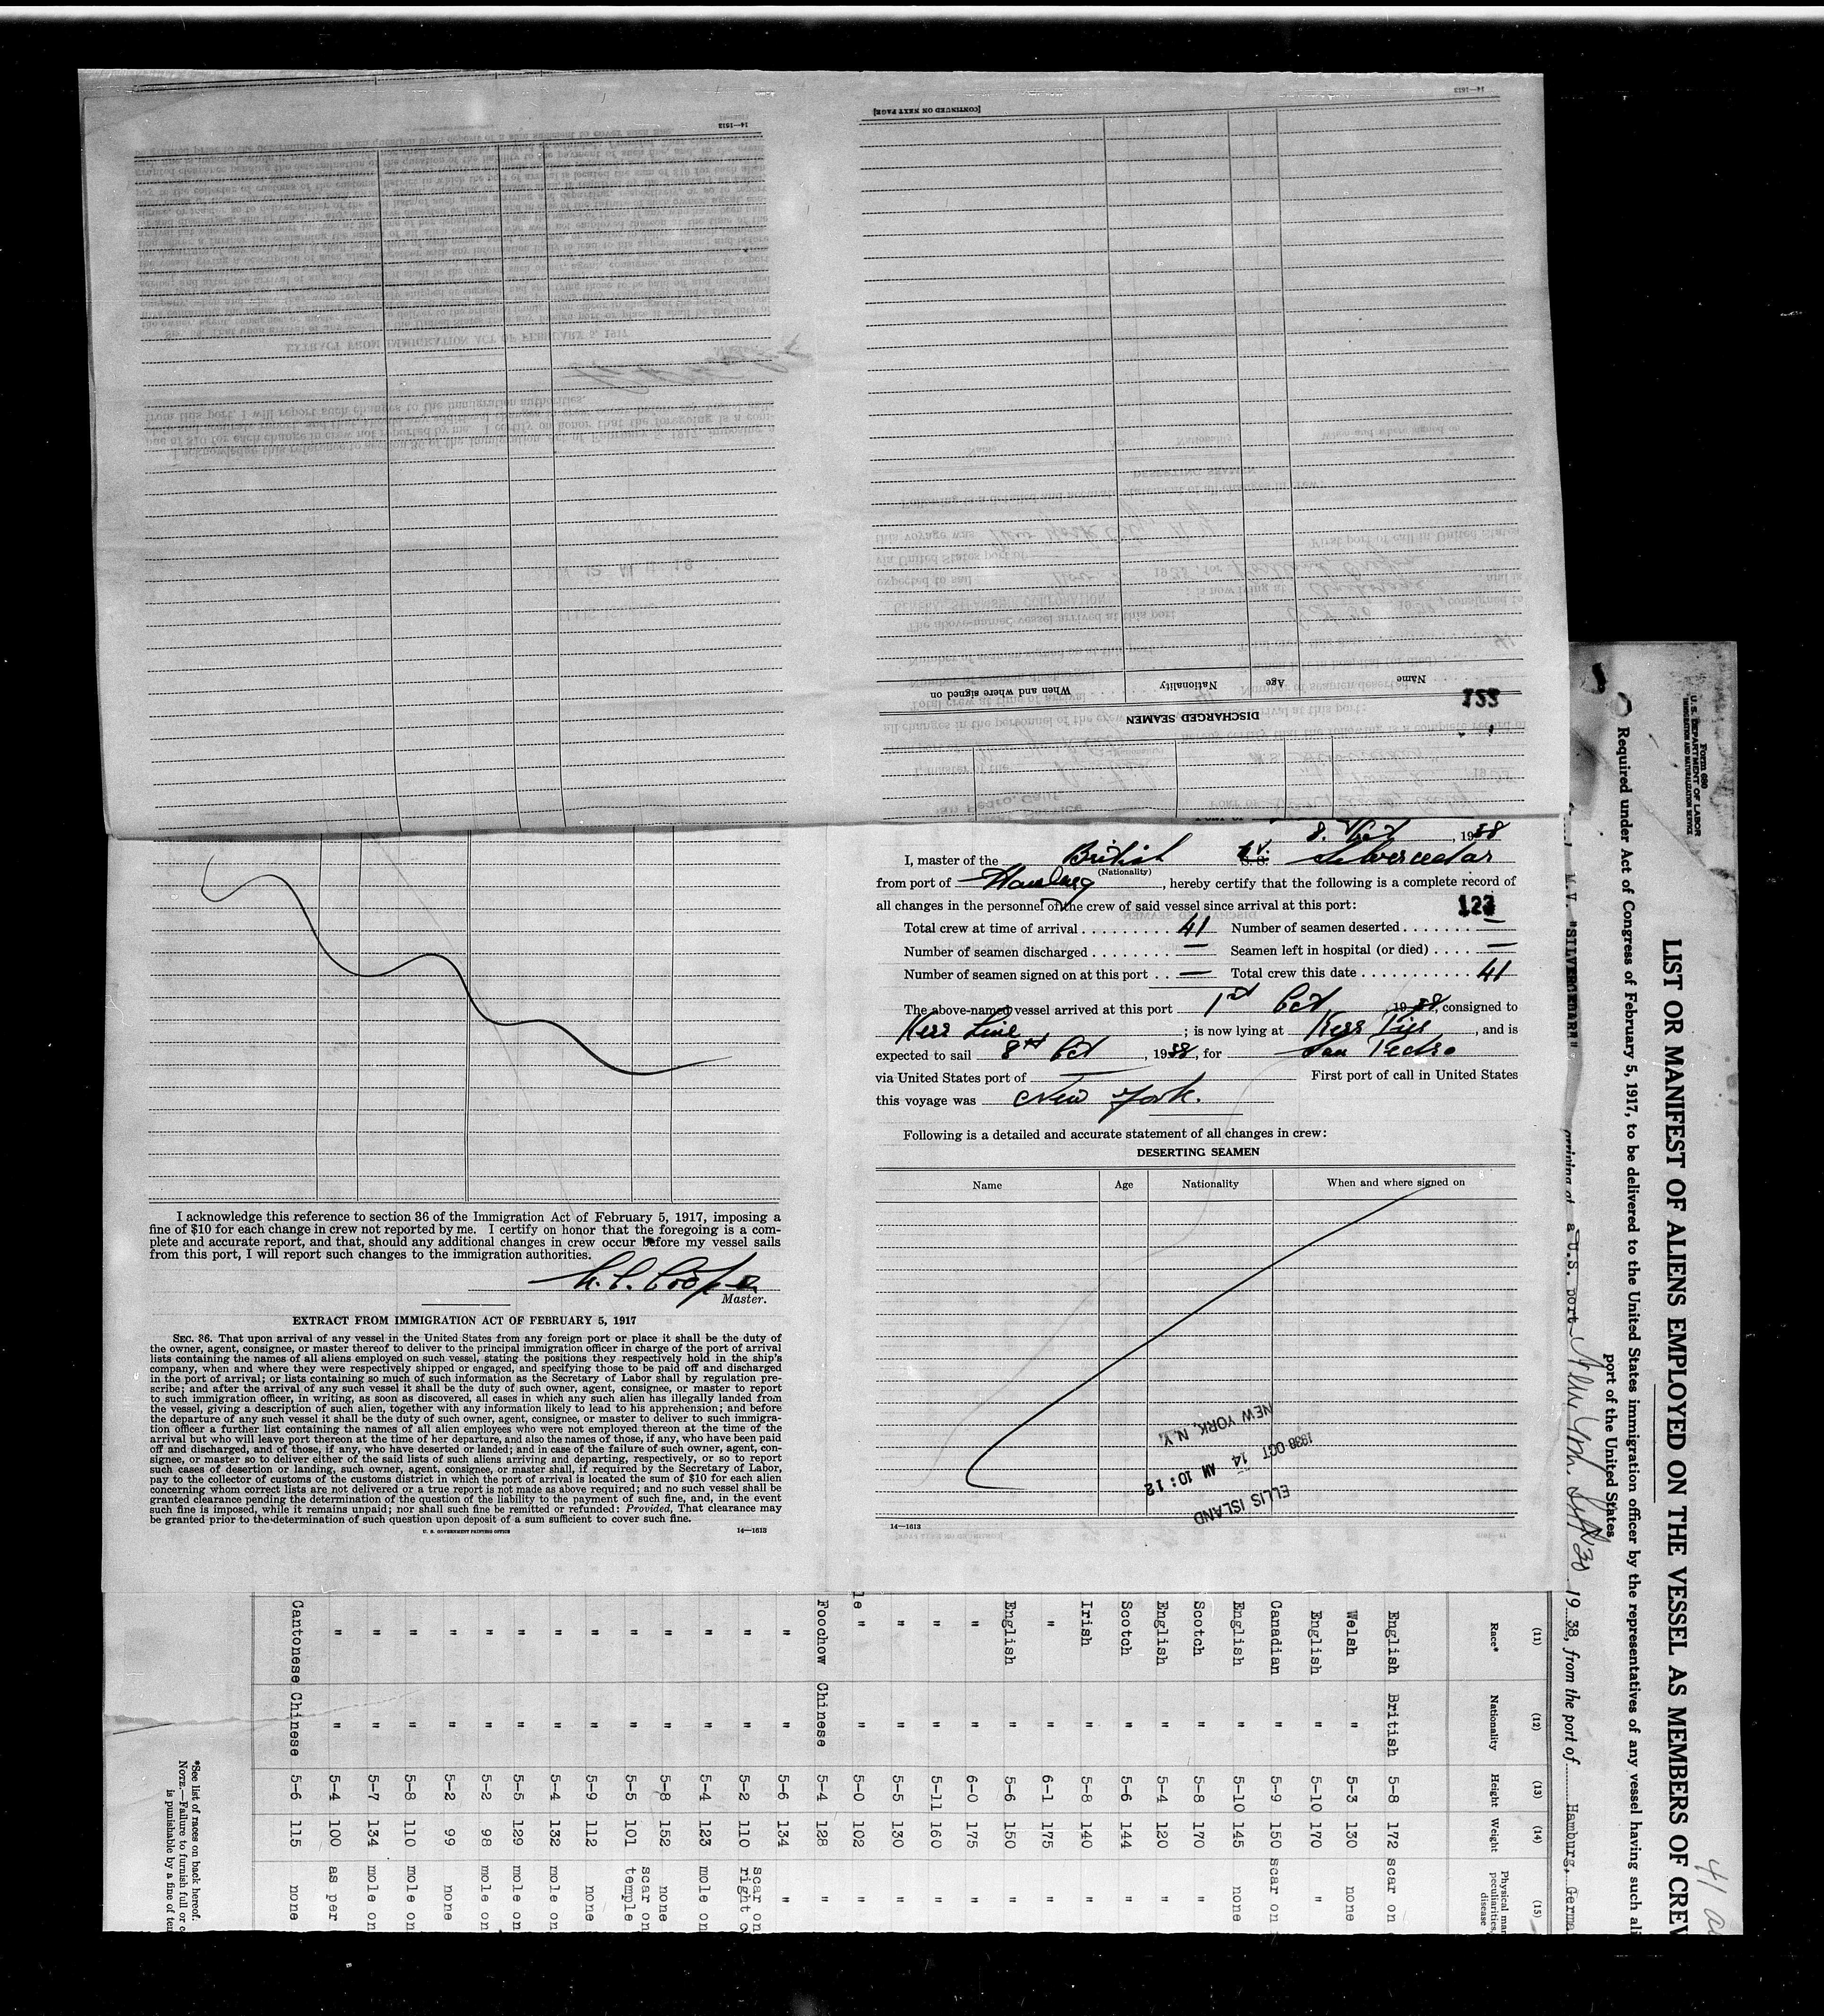 [CONTINUED ON NEXT PAGE]
14—1613
14—1613
DISCHARGED SEAMEN
Name
Age
Nationality
When and where signed on
155
8. Oct, 1938
I, master of the British M.V. Silvercedar
(Nationality)
from port of Hamburg, hereby certify that the following is a complete record of
all changes in the personnel of the crew of said vessel since arrival at this port:
123
Total crew at time of arrival 41 Number of seamen deserted —
Number of seamen discharged — Seamen left in hospital (or died) —
Number of seamen signed on at this port — Total crew this date 41
The above-named vessel arrived at this port 1st Oct, 1938, consigned to
Kerr Line; is now lying at Kerr Pier, and is
expected to sail 8th Oct, 1938, for San Pedro
via United States port of — First port of call in United States
this voyage was New York.
Following is a detailed and accurate statement of all changes in crew:
DESERTING SEAMEN
Name Age Nationality When and where signed on
NEW YORK, N.Y.
1938 OCT 14 AM 10:12
ELLIS ISLAND
14—1613
I acknowledge this reference to section 36 of the Immigration Act of February 5, 1917, imposing a
fine of $10 for each change in crew not reported by me. I certify on honor that the foregoing is a com-
plete and accurate report, and that, should any additional changes in crew occur before my vessel sails
from this port, I will report such changes to the immigration authorities.
Cooper
Master.
EXTRACT FROM IMMIGRATION ACT OF FEBRUARY 5, 1917
SEC. 36. That upon arrival of any vessel in the United States from any foreign port or place it shall be the duty of
the owner, agent, consignee, or master thereof to deliver to the principal immigration officer in charge of the port of arrival
lists containing the names of all aliens employed on such vessel, stating the positions they respectively hold in the ship's
company, when and where they were respectively shipped or engaged, and specifying those to be paid off and discharged
in the port of arrival; or lists containing so much of such information as the Secretary of Labor shall by regulation pre-
scribe; and after the arrival of any such vessel it shall be the duty of such owner, agent, consignee, or master to report
to such immigration officer, in writing, as soon as discovered, all cases in which any such alien has illegally landed from
the vessel, giving a description of such alien, together with any information likely to lead to his apprehension; and before
the departure of any such vessel it shall be the duty of such owner, agent, consignee, or master to deliver to such immigra-
tion officer a further list containing the names of all alien employees who were not employed thereon at the time of the
arrival but who will leave port thereon at the time of her departure, and also the names of those, if any, who have been paid
off and discharged, and of those, if any, who have deserted or landed; and in case of the failure of such owner, agent, con-
signee, or master so to deliver either of the said lists of such aliens arriving and departing, respectively, or so to report
such cases of desertion or landing, such owner, agent, consignee, or master shall, if required by the Secretary of Labor,
pay to the collector of customs of the customs district in which the port of arrival is located the sum of $10 for each alien
concerning whom correct lists are not delivered or a true report is not made as above required; and no such vessel shall be
granted clearance pending the determination of the question of the liability to the payment of such fine, and, in the event
such fine is imposed, while it remains unpaid; nor shall such fine be remitted or refunded: Provided, That clearance may
be granted prior to the determination of such question upon deposit of a sum sufficient to cover such fine.
U. S. GOVERNMENT PRINTING OFFICE
14—1613
Form 680
U. S. DEPARTMENT OF LABOR
IMMIGRATION AND NATURALIZATION SERVICE
41
LIST OR MANIFEST OF ALIENS EMPLOYED ON THE VESSEL AS MEMBERS OF CREW
Required under Act of Congress of February 5, 1917, to be delivered to the United States immigration officer by the representatives of any vessel having such ali
port of the United States
M.V. "SILVERCEDAR" arriving at a U.S. port New York Sept 30 1938, from the port of Hamburg, Germa
(11) (12) (13) (14) (15)
Race* Nationality Height Weight Physical mar peculiarities, disease
English British 5-8 172 scar on
Welsh " 5-3 130 none
English " 5-10 170 "
Canadian " 5-9 150 scar on
English " 5-10 145 none
Scotch " 5-8 170 "
English " 5-4 120 "
Scotch " 5-6 144 "
Irish " 5-8 140 "
" " 6-1 175 "
English " 5-6 150 "
" " 6-0 175 "
" " 5-11 160 "
" " 5-5 130 "
le " " 5-0 102 "
Foochow Chinese 5-4 128 "
" " 5-6 134 "
" " 5-2 110 scar on right
" " 5-4 123 mole on
" " 5-8 152 none
" " 5-5 101 scar on temple
" " 5-9 112 none
" " 5-4 132 mole on
" " 5-5 129 mole on
" " 5-2 98 mole on
" " 5-2 99 none
" " 5-8 110 mole on
" " 5-7 134 mole on
" " 5-4 100 as per
Cantonese Chinese 5-6 115 none
*See list of races on back hereof.
NOTE.—Failure to furnish full or c
is punishable by a fine of ten